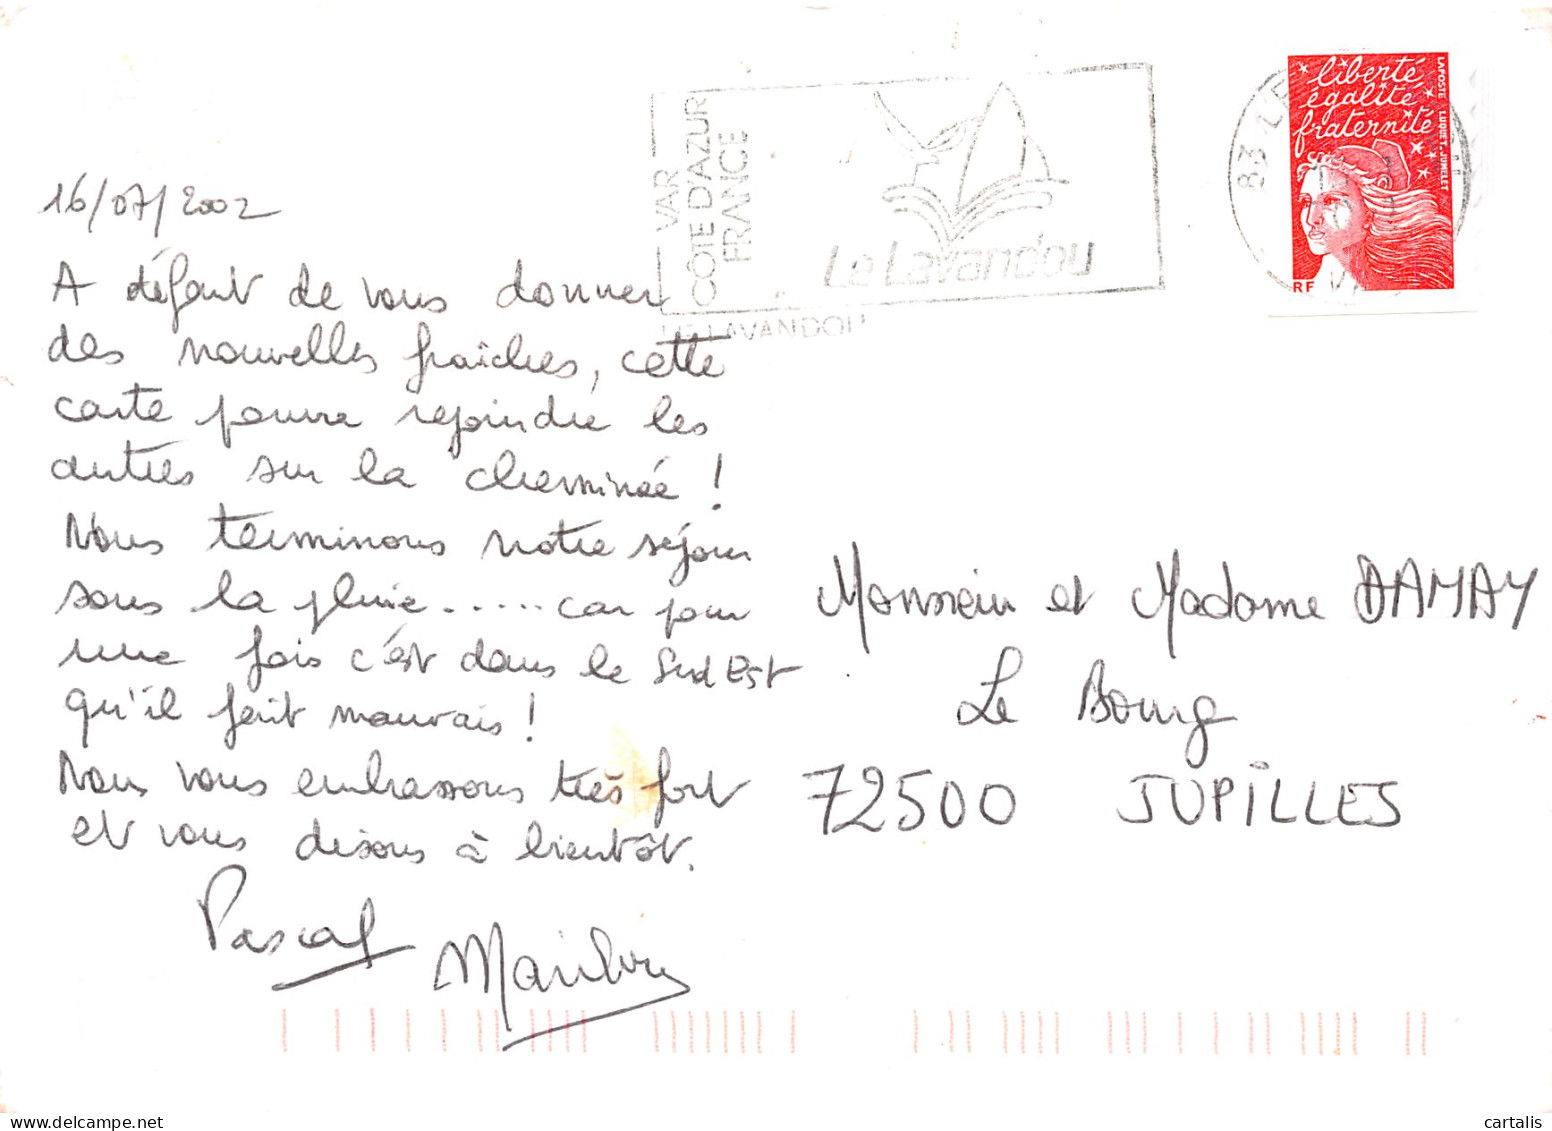 VAR
CÔTE D'AZUR
FRANCE
Le Lavandou
LE LAVANDOU
83 LE
liberté
égalité
fraternité
LA POSTE LUQUET-JUMELET
RF
16/07/2002
A défaut de vous donner
des nouvelles fraîches, cette
carte pourra rejoindre les
autres sur la cheminée !
Nous terminons notre séjour
sous la pluie ..... car pour
une fois c'est dans le Sud Est
qu'il fait mauvais !
Nous vous embrassons très fort
et vous disons à bientôt.
Pascal
Monsieur et Madame DAMAY
Le Bourg
72500 JUPILLES
cartalis